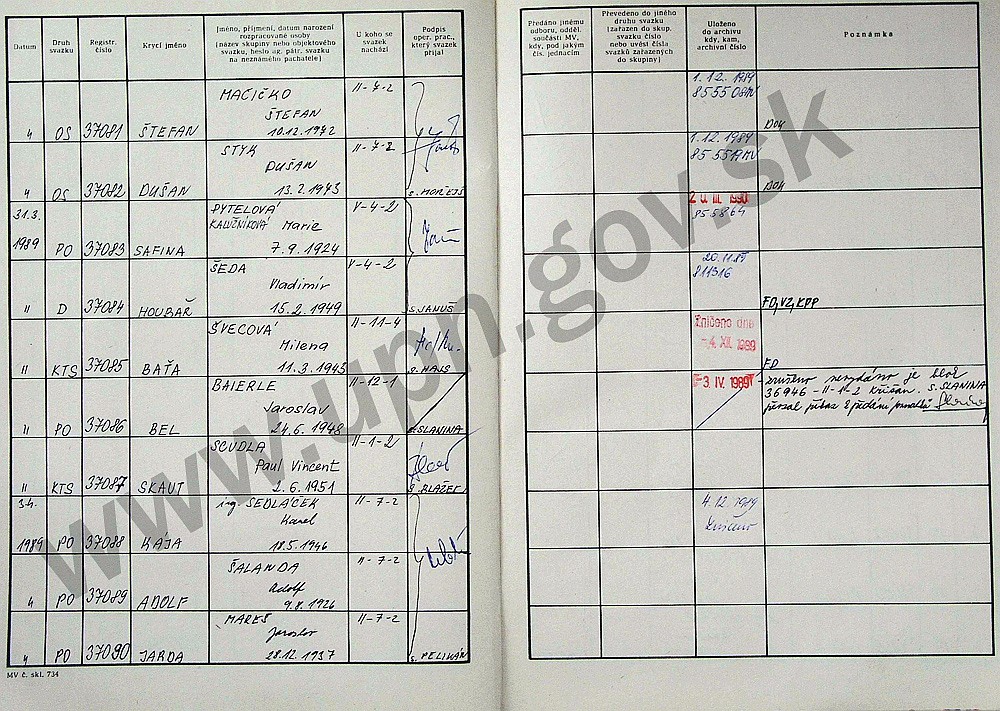 Datum
Druh
svazku
Registr.
číslo
Krycí jméno
Jméno, příjmení, datum narození
rozpracované osoby
(název skupiny nebo objektového
svazku, heslo ag. pátr. svazku
na neznámého pachatele)
U koho se
svazek
nachází
Podpis
oper. prac.,
který svazek
přijal
Předáno jinému
odboru, odděl.
součásti MV,
kdy, pod jakým
čís. jednacím
Převedeno do jiného
druhu svazku
(zařazen do skup.
svazku číslo
nebo uvést čísla
svazků zařazených
do skupiny)
Uloženo
do archivu
kdy, kam,
archivní číslo
Poznámka
MAČIČKO II-7-2 1.12.1989
ŠTEFAN
" OS 37081 ŠTEFAN 10.12.1942
STYK II-7-2 1.12.1989
DUŠAN
" OS 37082 DUŠAN 13.2.1943
31.3. PYTELOVÁ V-4-2
Marie 855864
1989 PO 37083 SAFINA 7.9.1924
ŠEDA V-4-2 20.11.89
Vladimír 811316
" D 37084 HOUBAŘ 15.2.1949 s. JANUŠ FD, VZ, KPP
ŠVECOVÁ II-11-4 Zničeno dne
Milena -4. XII. 1989
" KTS 37085 BAŤA 11.3.1945 FD
BAIERLE II-12-1 -3. IV. 1989 zrušeno nevydáno je blok
Jaroslav 36946 - II-1-2 s. SLANINA
" PO 37086 BEL 24.6.1948 s. SLANINA
SCUDLA II-1-2
Paul Vincent
" KTS 37087 SKAUT 2.6.1951 s. BLAŽEK
3.4. ing. SEDLÁČEK II-7-2 4.12.1989
Karel Zničeno
1989 PO 37088 KÁJA 18.5.1946
ŠALANDA II-7-2
Adolf
" PO 37089 ADOLF 9.8.1926
MAREŠ II-7-2
Jaroslav
" PO 37090 JARDA 28.12.1937 s. PELIKÁN
MV č. skl. 734
www.upn.gov.sk